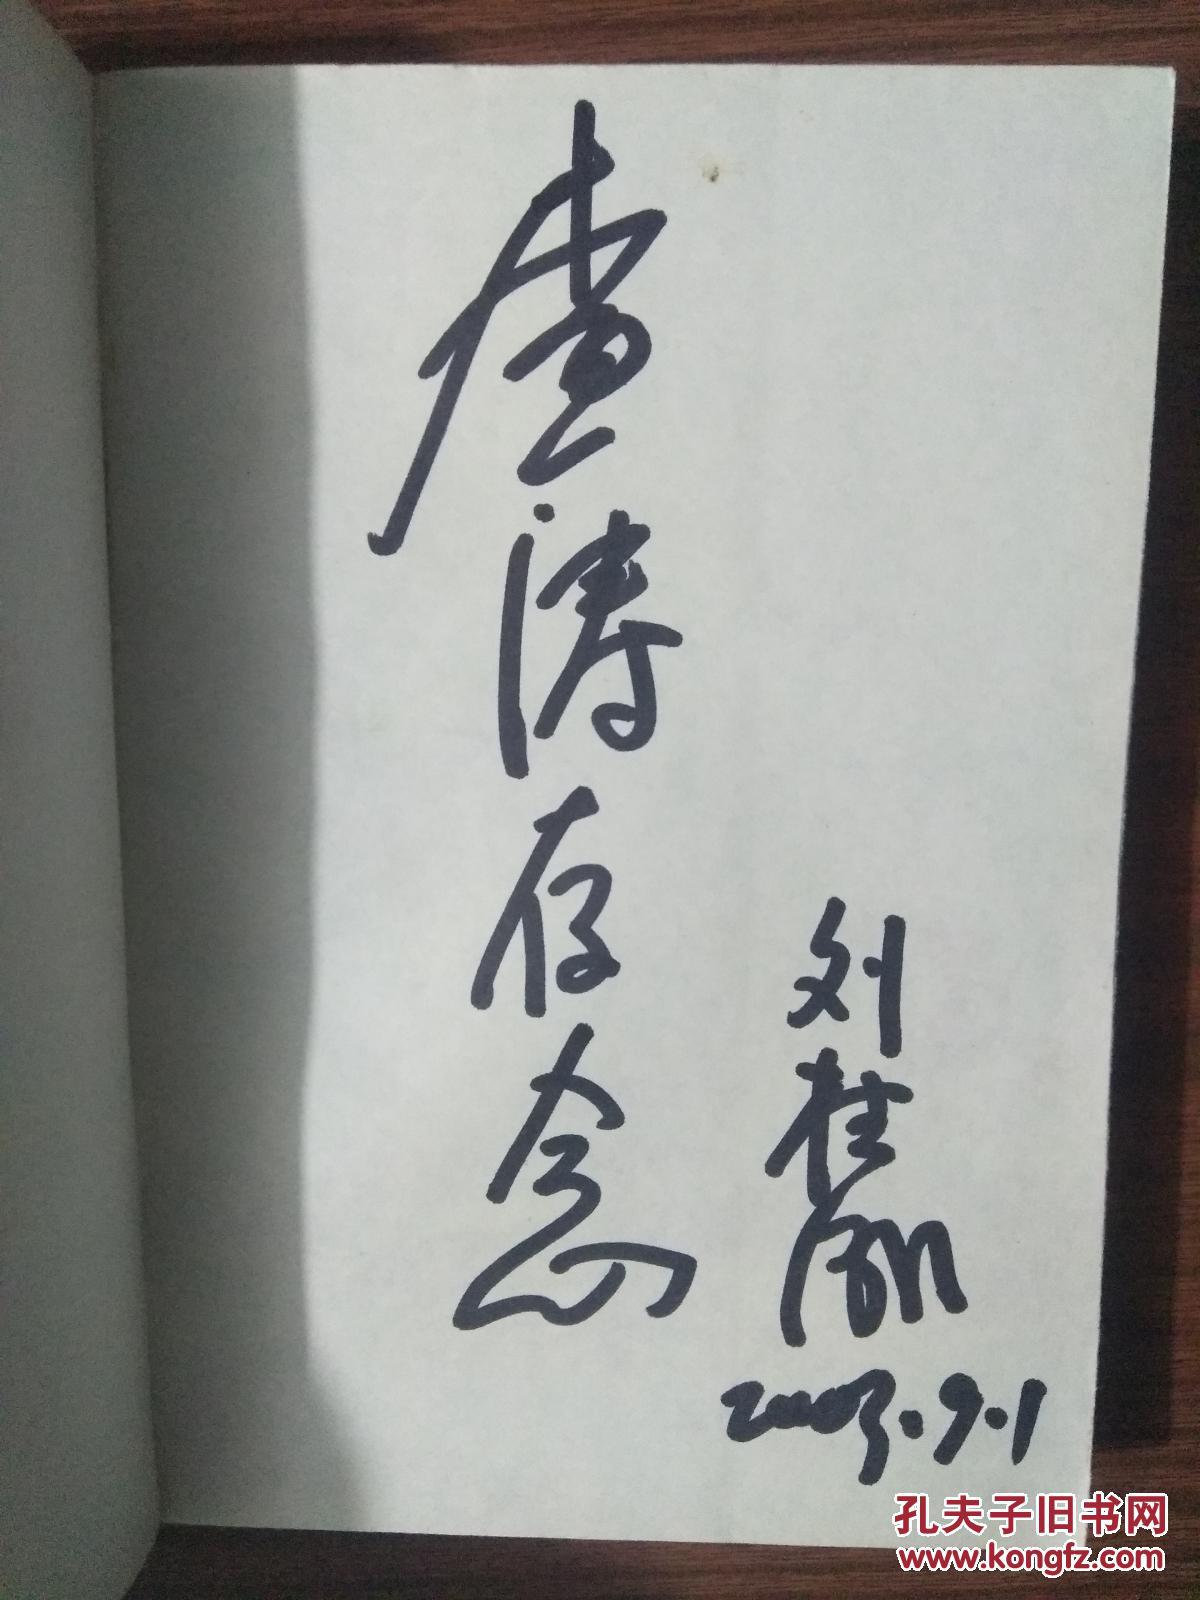 查涛存念
刘桂
2003.9.1
孔夫子旧书网
www.kongfz.com